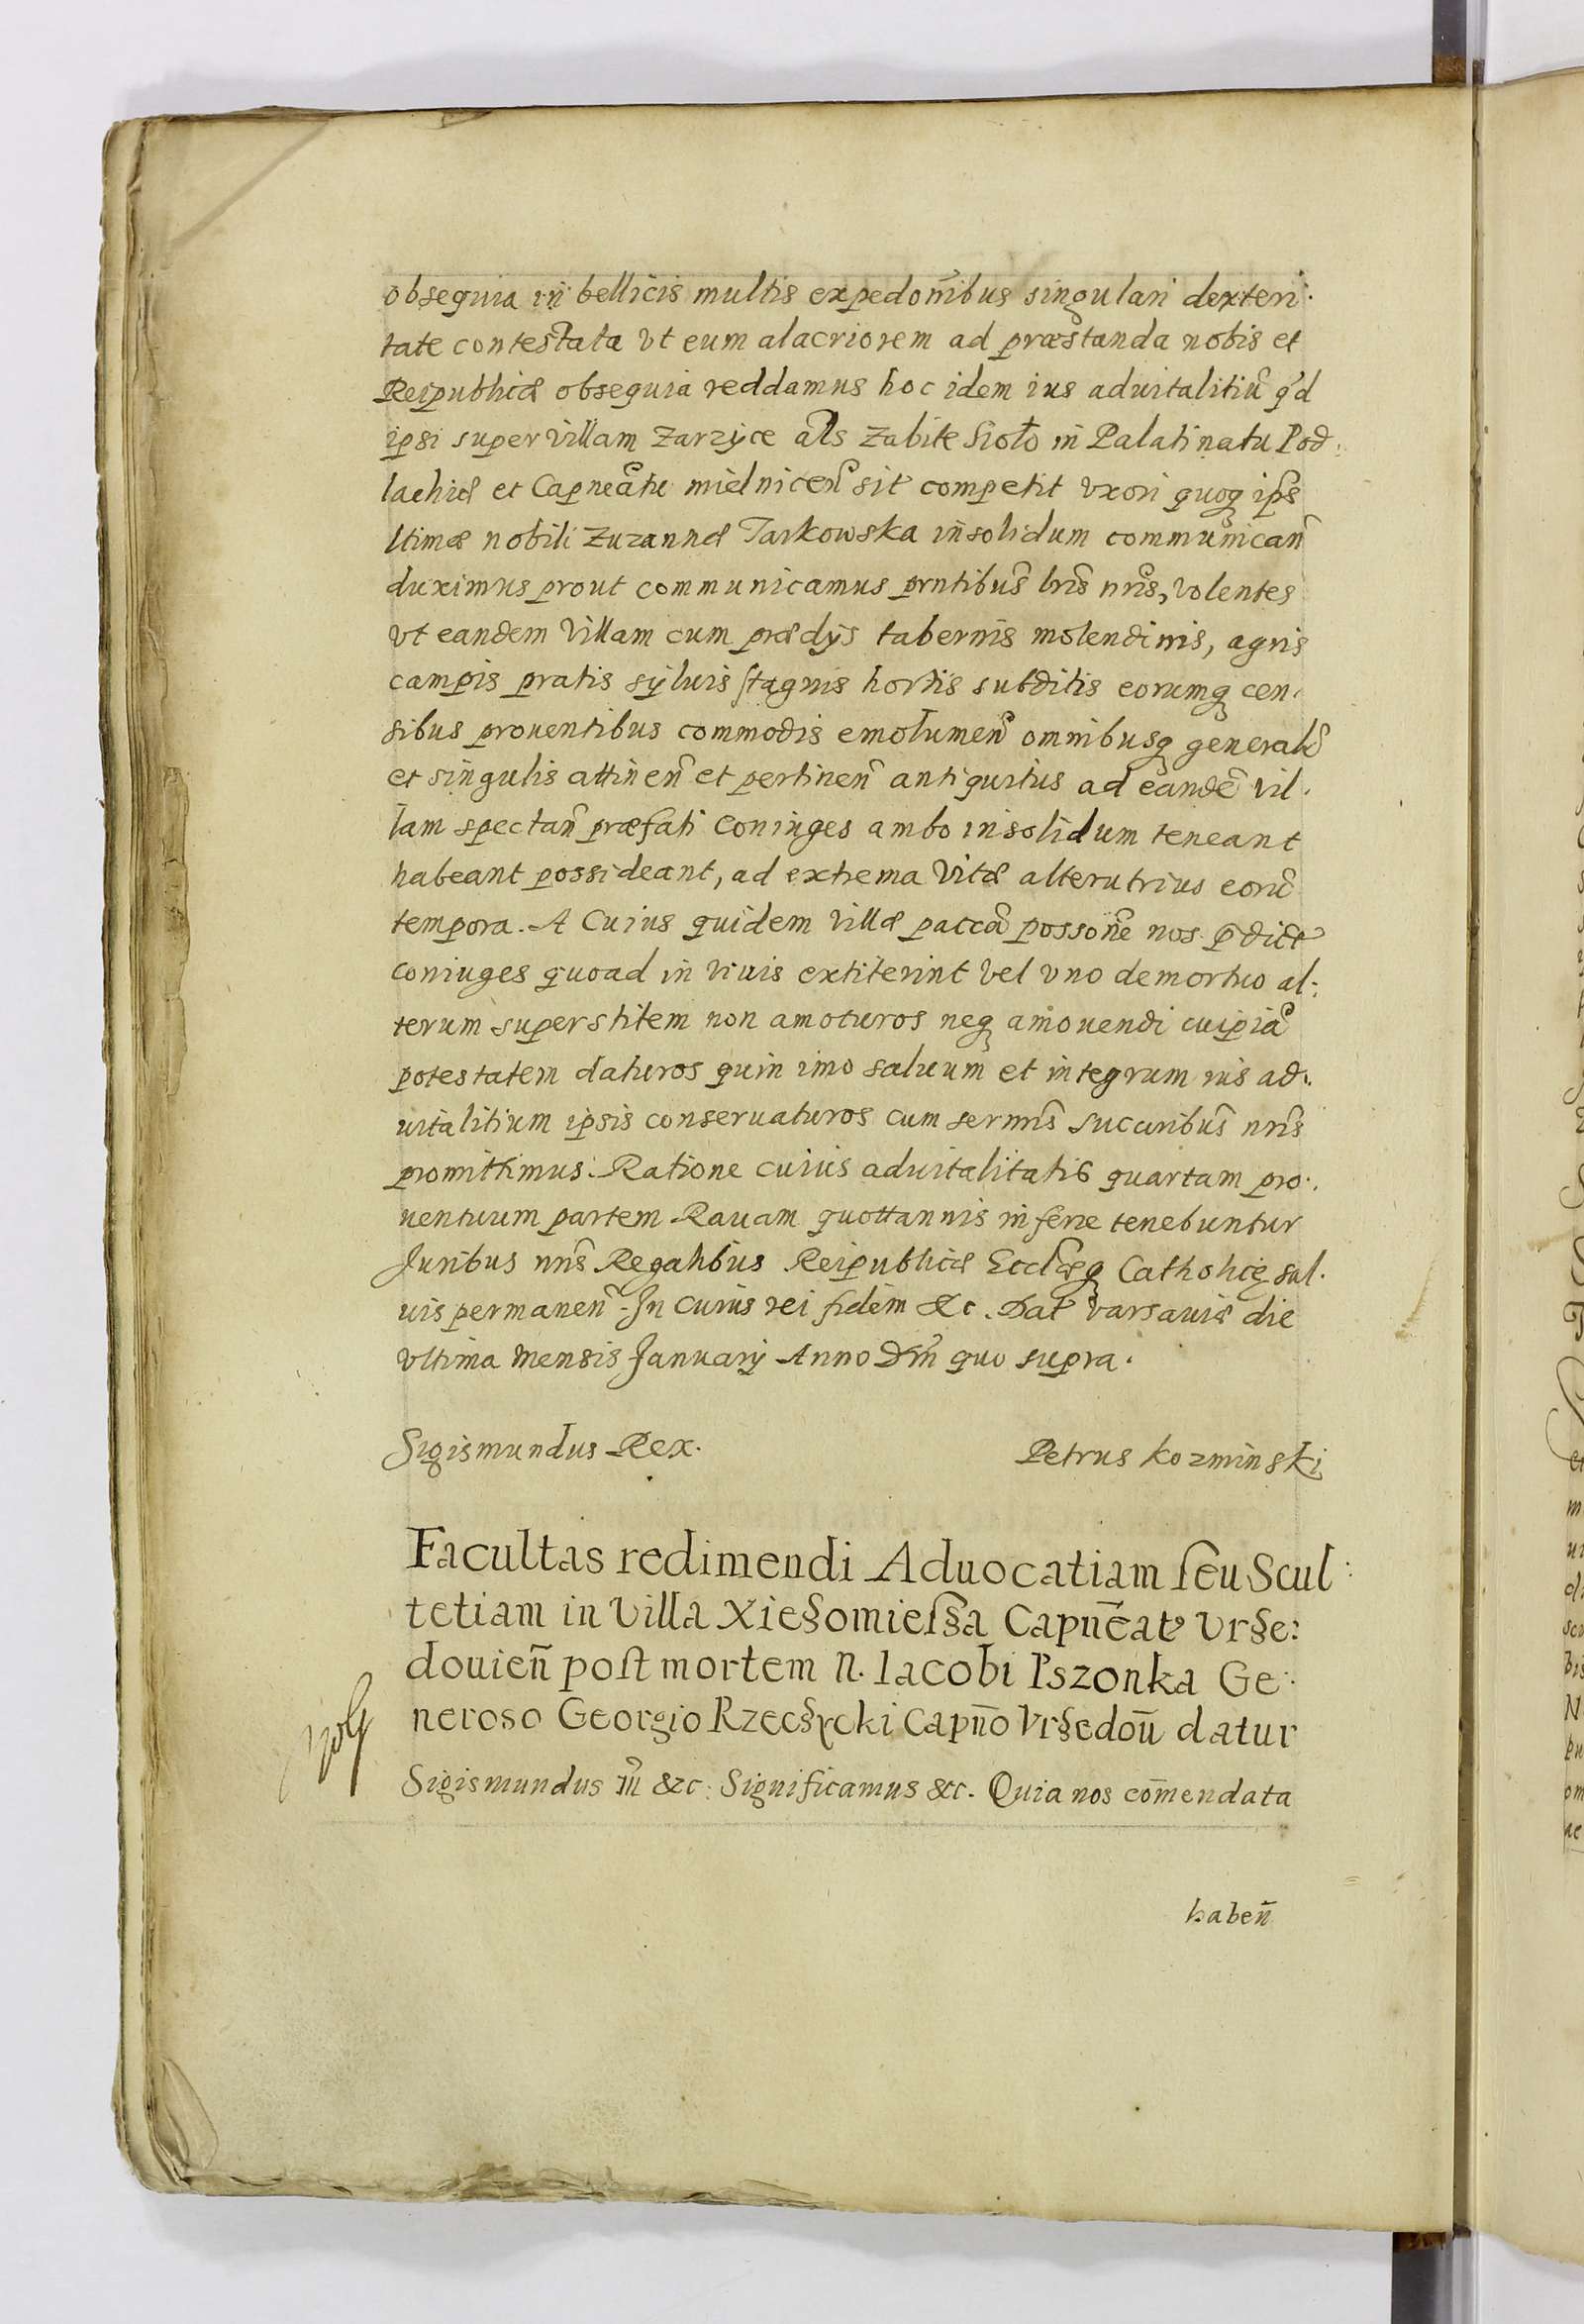 obsequia in bellicis multis expedōnibus singulari dexteri-
tate contestata vt eum alacriorem ad præstanda nobis et
Reipublicæ obsequia reddamus hoc idem ius aduitalitiū qd
ipsi super villam Zarzÿce als Zabite Sioło in Palatinatu Pod-
lachiæ et Capneātu mielnicen̄ sit competit vxori quoq ips
ltimæ nobili Zuzannæ Tarkowska insolidum communican̄
duximus prout communicamus prntibus lris nris, volentes
vt eandem villam cum prædys tabernis molendinis, agris
campis pratis syluis stagnis hortis subditis eorumq cen-
sibus prouentibus commodis emolumen̄ omnibusq general
et singulis attinen̄ et pertinen̄ antiquitus ad eandē vil-
lam spectan̄ præfati Coniuges ambo insolidum teneant
habeant possideant, ad extrema vitæ alterutrius eorū
tempora. A Cuius quidem villæ paccā possonē nos pdict
coniuges quoad in viuis extiterint vel vno demortuo al-
terum superstitem non amoturos neq amouendi cuipiā
potestatem daturos quin imo saluum et integrum ius ad-
uitalitium ipsis conseruaturos cum sermis sucaribus nris
promittimus. Ratione cuius aduitalitatis quartam pro-
uentuum partem Rauam quottannis inferre tenebuntur
Juribus nris Regalibus Reipublicæ Eccliæq Catholicę sal-
uis permanen̄. In cuius rei fidem &c. Dat varsauiæ die
vltima mensis Januarij Anno Dni quo supra.
Sigismundus Rex.
Petrus kozminski
Facultas redimendi Aduocatiam seu Scul-
tetiam in villa Xięzomiesza Capn̄eat vrze-
douien̄ post mortem N. Iacobi Pszonka Ge-
neroso Georgio Rzeczycki Capn̄o vrzedou̅ datur
Sigismundus III &c: Significamus &c. Quia nos com̄endata
haben̄